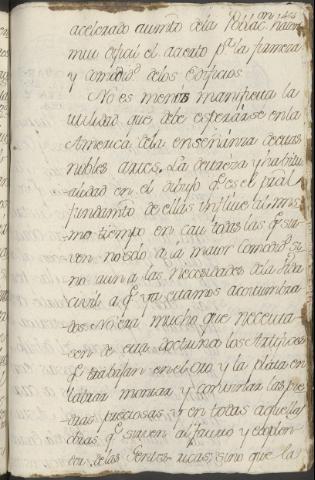 acelerado aumto dela Poblacon haran
mui
 el acierto pa la firmeza
y comodid delos edificios
No es menos manifiesta la
utilidad que debe esperarse enla
America dela enseñanza deestas
nobles artes. La destreza y habitu
alidad en el dibujo qe es el pral
fundamto de ellas influie al mis
mo tiempo en casi todas las qe sir
ven no solo a la maior comodidd si
no aun a las necesidades dela vida
civil a qe ya estamos acostumbra
dos. No era mucho que necesita
sen de esta doctrina los Artifices
qe trabajan en el oro y la plata en
labrar montar y
 las pie
dras preciosas y en todas aquellas
obras qe sirven al fausto y esplen
dor delas Gentes ricas, sino que la